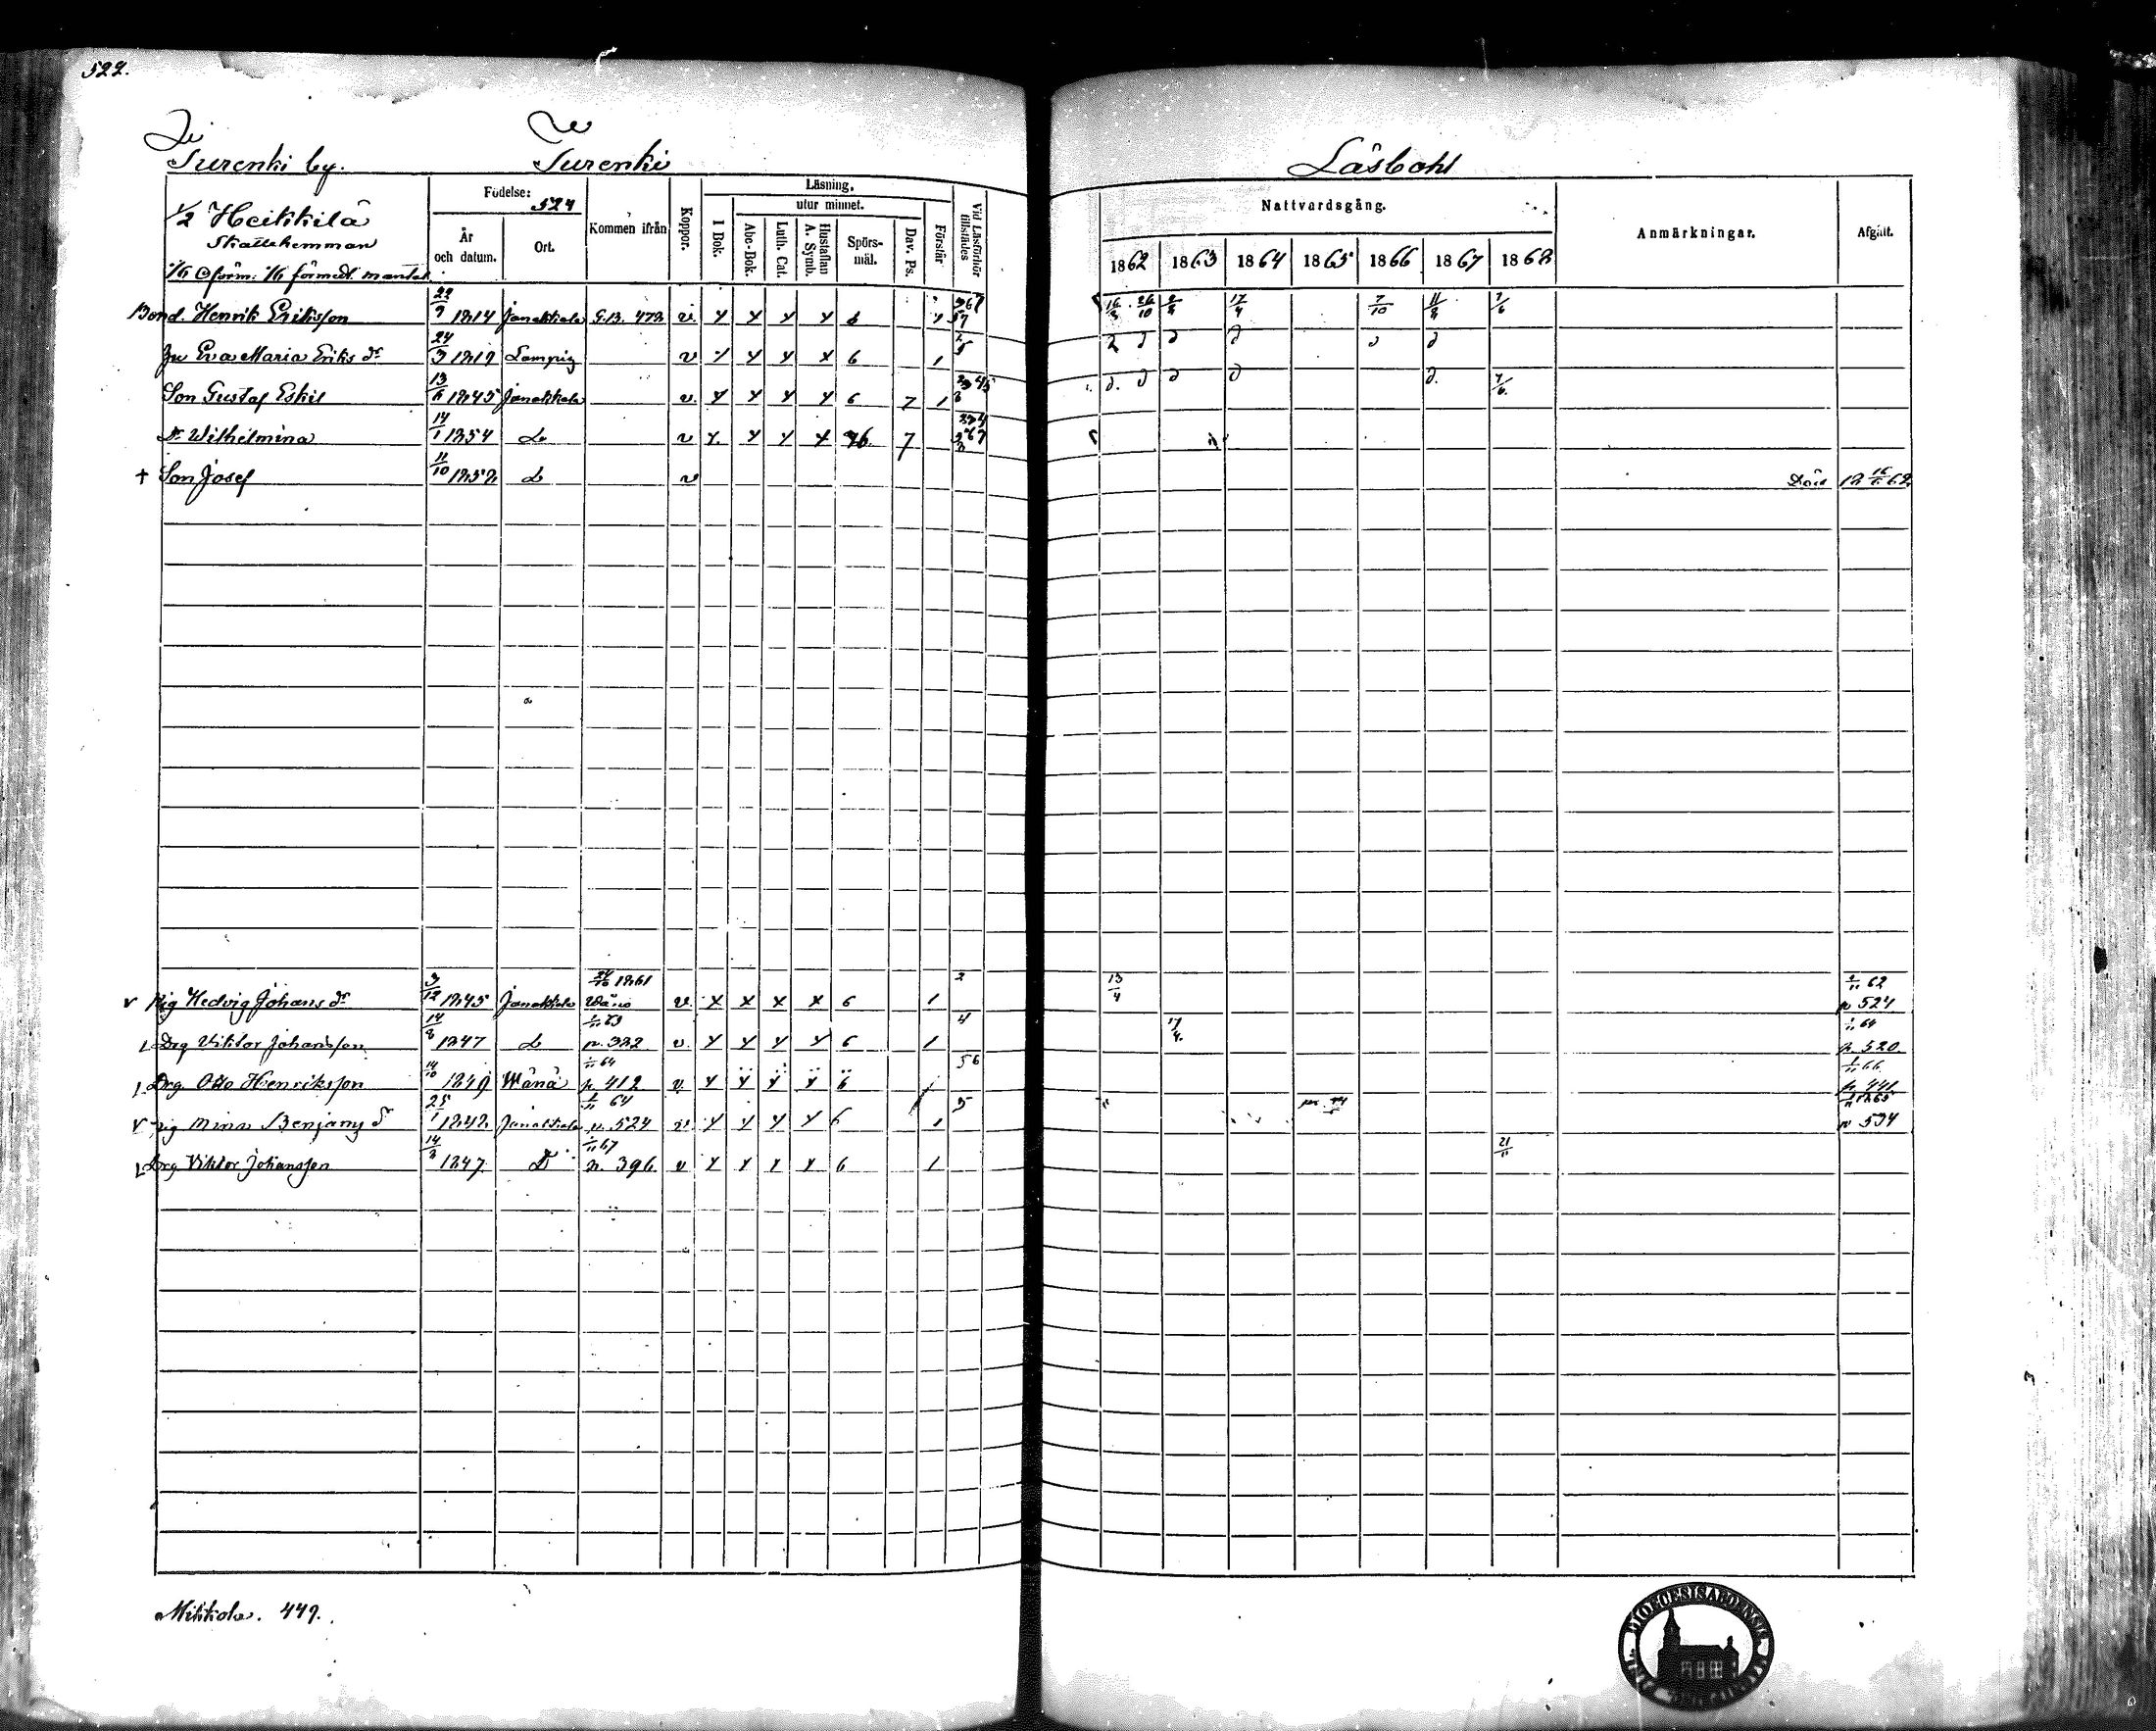 522.
Turenki by. Turenki Läsbohl
1/2 Heikkilä
Skattehemman
1/6 oförm. 1/6 förmedl. mantal
Födelse: 524
År och datum.
Ort.
Kommen ifrån
Koppor.
Läsning.
I Bok.
utur minnet.
Abc-Bok.
Luth. Cat.
Hustaflan A. Symb.
Spörsmål.
Dav. Ps.
Förstår
Vid Läsförhör tillstädes
Nattvardsgång.
1862 1863 1864 1865 1866 1867 1868
Anmärkningar.
Afgått.
Bond. Henrik Eriksson 22/9 1814 Janakkala G.B. 472 v. 16/3 26/10 17/4 7/10 7/6
Eva Maria Eriks dr 24/3 1819 v 6 1
Son Gustaf Eskil 13/6 1845 Janakkala v. 6 7 1 7/6.
Dr Wilhelmina 14/1 1854 Do v 7
+ Son Josef 11/10 1852 Do v Död
v Pig Hedvig Johans dr 3/12 1845 Janakkala 24/10 1861 v. x x x x 6 1 2 13/4 1/11 62 p 524
Drg Viktor Johansson 14/8 1847 Do 1/11 63 p. 322 v. 6 1 4 17/4. 1/11 64 p. 520.
Drg. Otto Henriksson 14/10 1849 Wånå 1/11 64 p. 412 v. 6 56 1/11 66 p. 441
v Pig Mina Benjams dr 25/1 1842 Janakkala 1/11 64 p. 524 v 6 1 5 1/11 1865 p 534
Drg Viktor Johansson 14/8 1847 D 1/11 67 p. 396 v 6 1 21/11
Mikkola. 449.